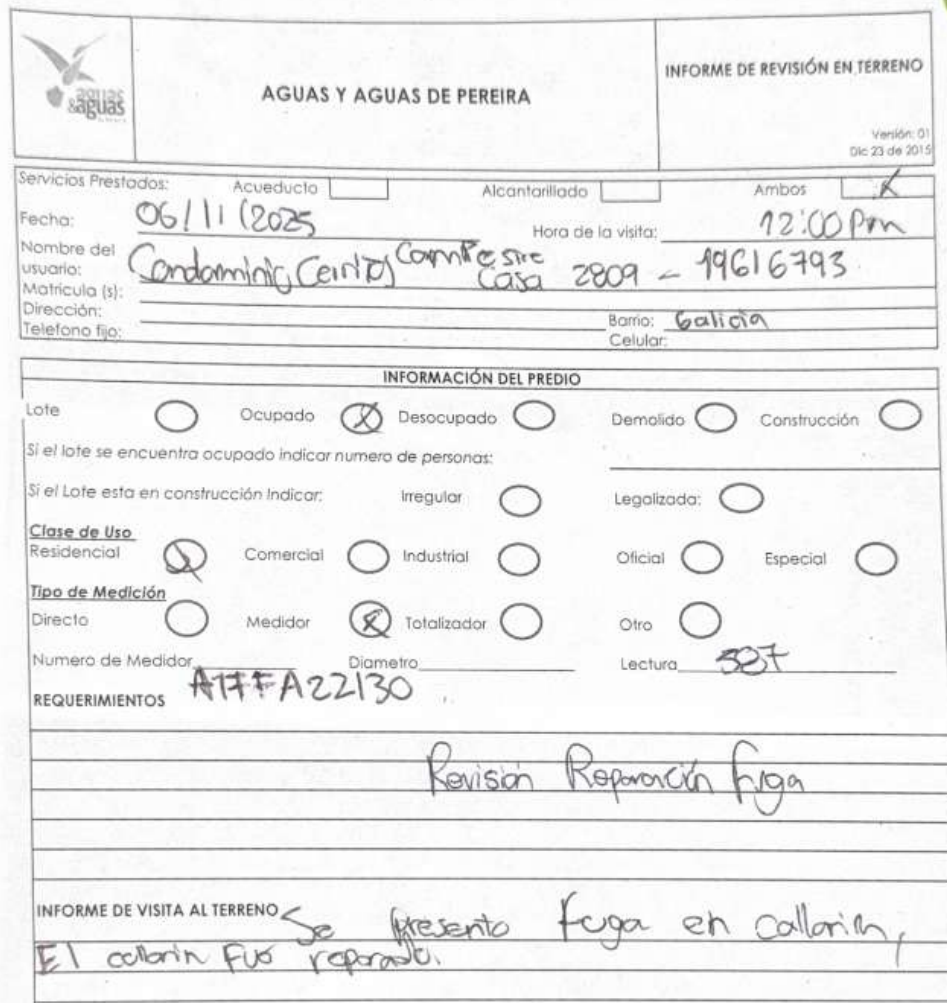 aguas
&aguas
AGUAS Y AGUAS DE PEREIRA
INFORME DE REVISIÓN EN TERRENO
Versión: 01
Dic 23 de 2015
Servicios Prestados: Acueducto Alcantarillado Ambos X
Fecha: 06/11/2025 Hora de la visita: 12:00 Pm
Nombre del usuario: Condominio Cerritos Campestre
Casa 2809 - 19616793
Matricula (s):
Dirección: Barrio: Galicia
Telefono fijo: Celular:
INFORMACIÓN DEL PREDIO
Lote Ocupado X Desocupado Demolido Construcción
Si el lote se encuentra ocupado indicar numero de personas:
Si el Lote esta en construcción Indicar: Irregular Legalizada:
Clase de Uso
Residencial X Comercial Industrial Oficial Especial
Tipo de Medición
Directo Medidor X Totalizador Otro
Numero de Medidor Diametro Lectura
REQUERIMIENTOS
Revisión Reparación fuga
INFORME DE VISITA AL TERRENO Se presento fuga en callarin,
El collarin Fue reparado.